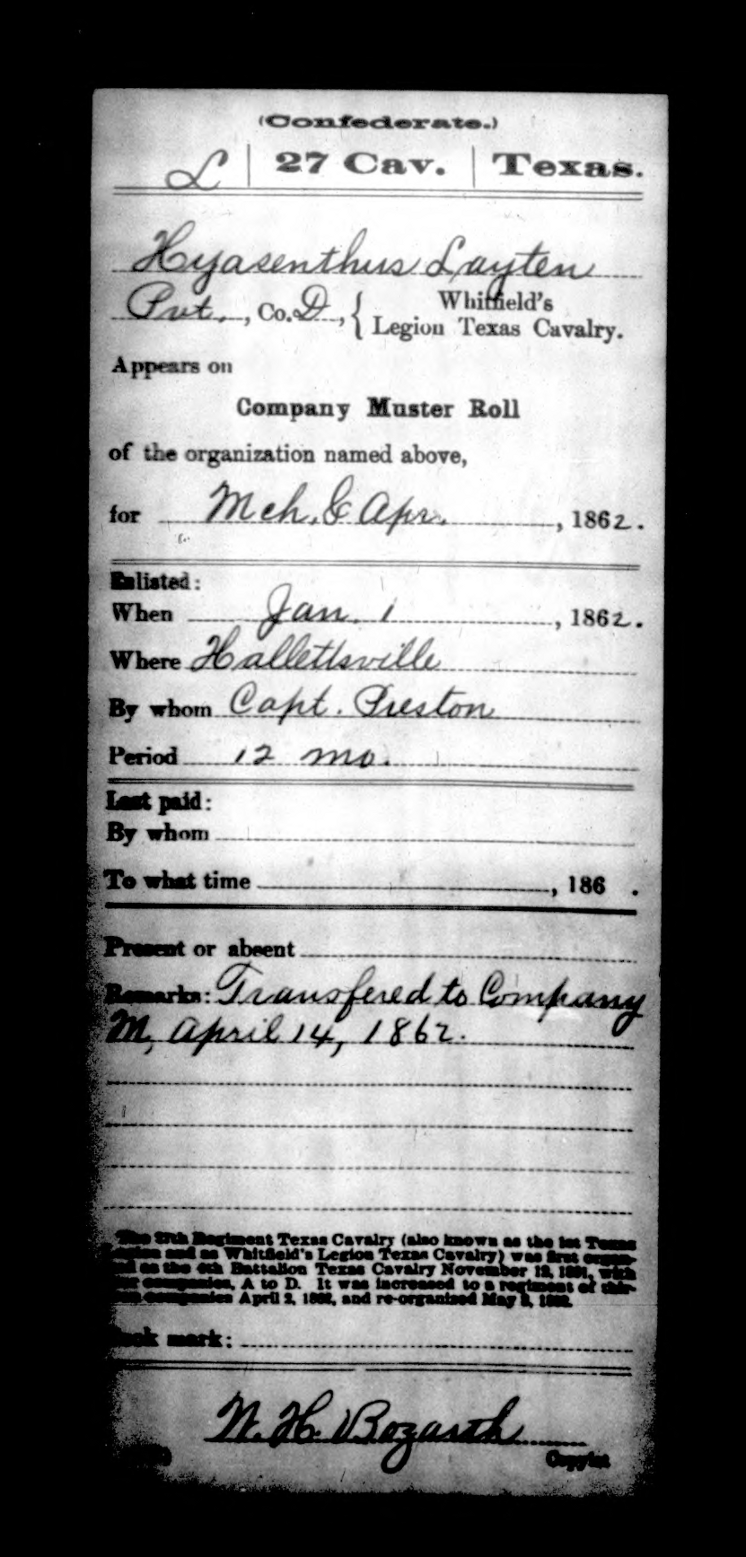 (Confederate.)
L | 27 Cav. | Texas.
Hyasenthus Layten
Pvt., Co. D, { Whitfield's
Legion Texas Cavalry.
Appears on
Company Muster Roll
of the organization named above,
for Mch. & Apr., 1862.
Enlisted:
When Jan. 1, 1862.
Where Hallettsville
By whom Capt. Preston
Period 12 mo.
Last paid:
By whom
To what time , 186 .
Present or absent
Remarks: Transfered to Company
M, April 14, 1862.
The 27th Regiment Texas Cavalry (also known as the 1st Texas
Legion and as Whitfield's Legion Texas Cavalry) was first organ-
ized as the 4th Battalion Texas Cavalry November 13, 1861, with
four companies, A to D. It was increased to a regiment of thir-
teen companies April 2, 1862, and re-organized May 8, 1862.
Book mark:
W. H. Bozarth
Copyist